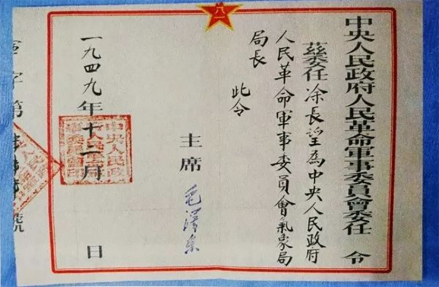 八一
中央人民政府人民革命軍事委員會委任令
茲委任涂長望為中央人民政府
人民革命軍事委員會氣象局
局長
此令
主席 毛澤東
一九四九年十二月 日
字第 號